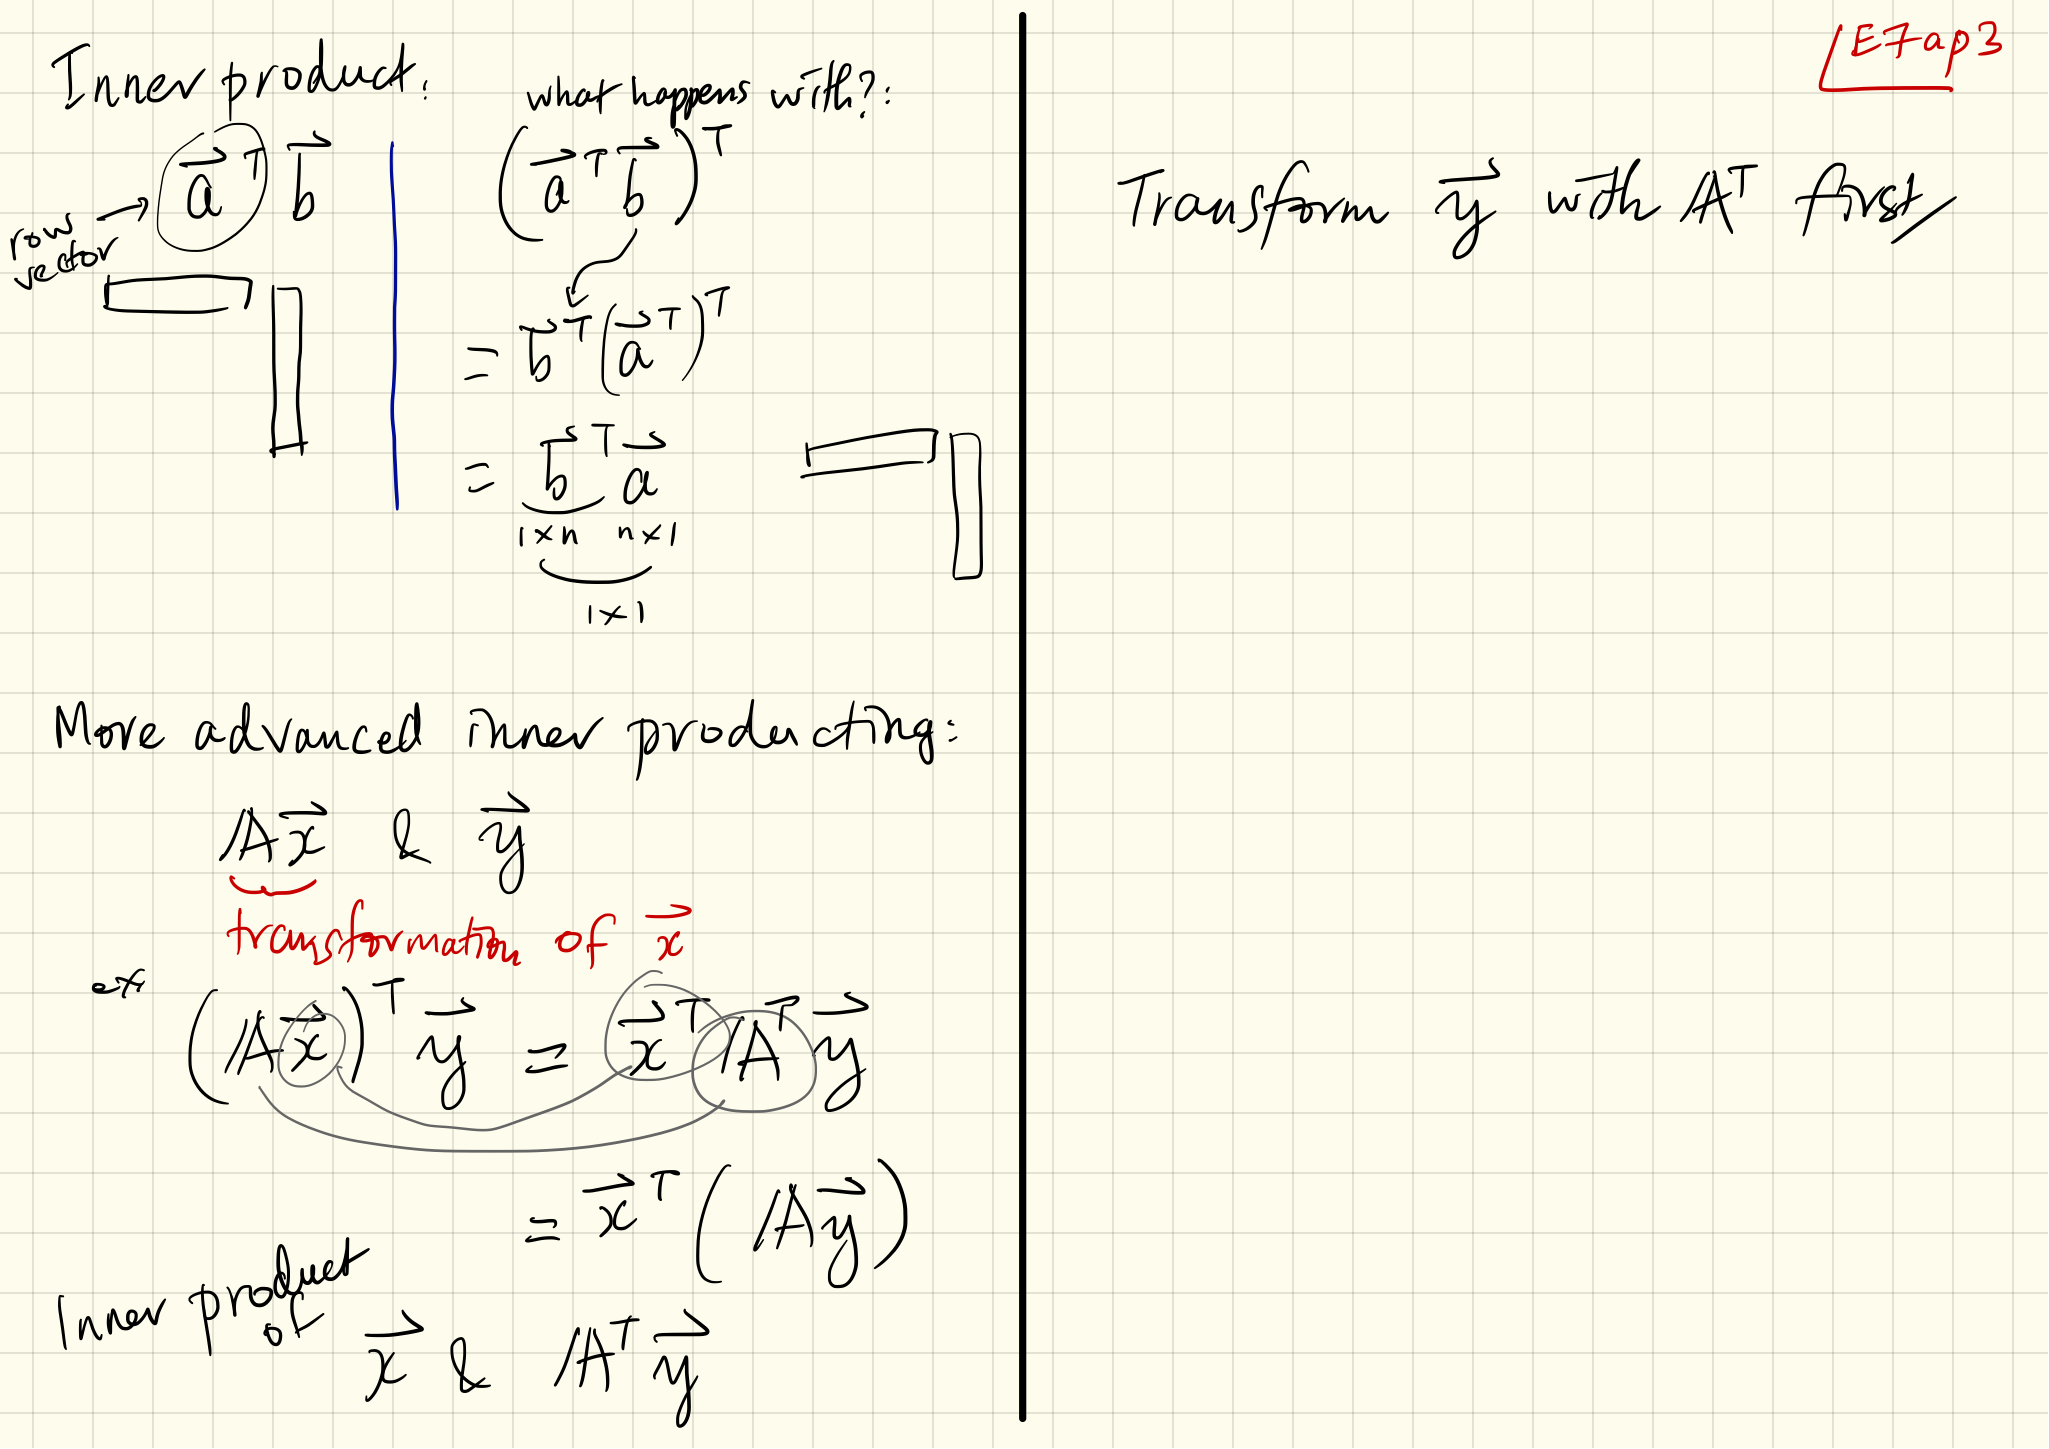 Inner product:
a⃗ᵀ b⃗
row vector
what happens with?:
(a⃗ᵀ b⃗)ᵀ
= b⃗ᵀ (a⃗ᵀ)ᵀ
= b⃗ᵀ a⃗
1×n n×1
1×1
More advanced inner producting:
Ax⃗ & y⃗
transformation of x⃗
ex
(Ax⃗)ᵀ y⃗ = x⃗ᵀ Aᵀ y⃗
= x⃗ᵀ (Ay⃗)
Inner product of
x⃗ & Aᵀ y⃗
E7ap3
Transform y⃗ with Aᵀ first